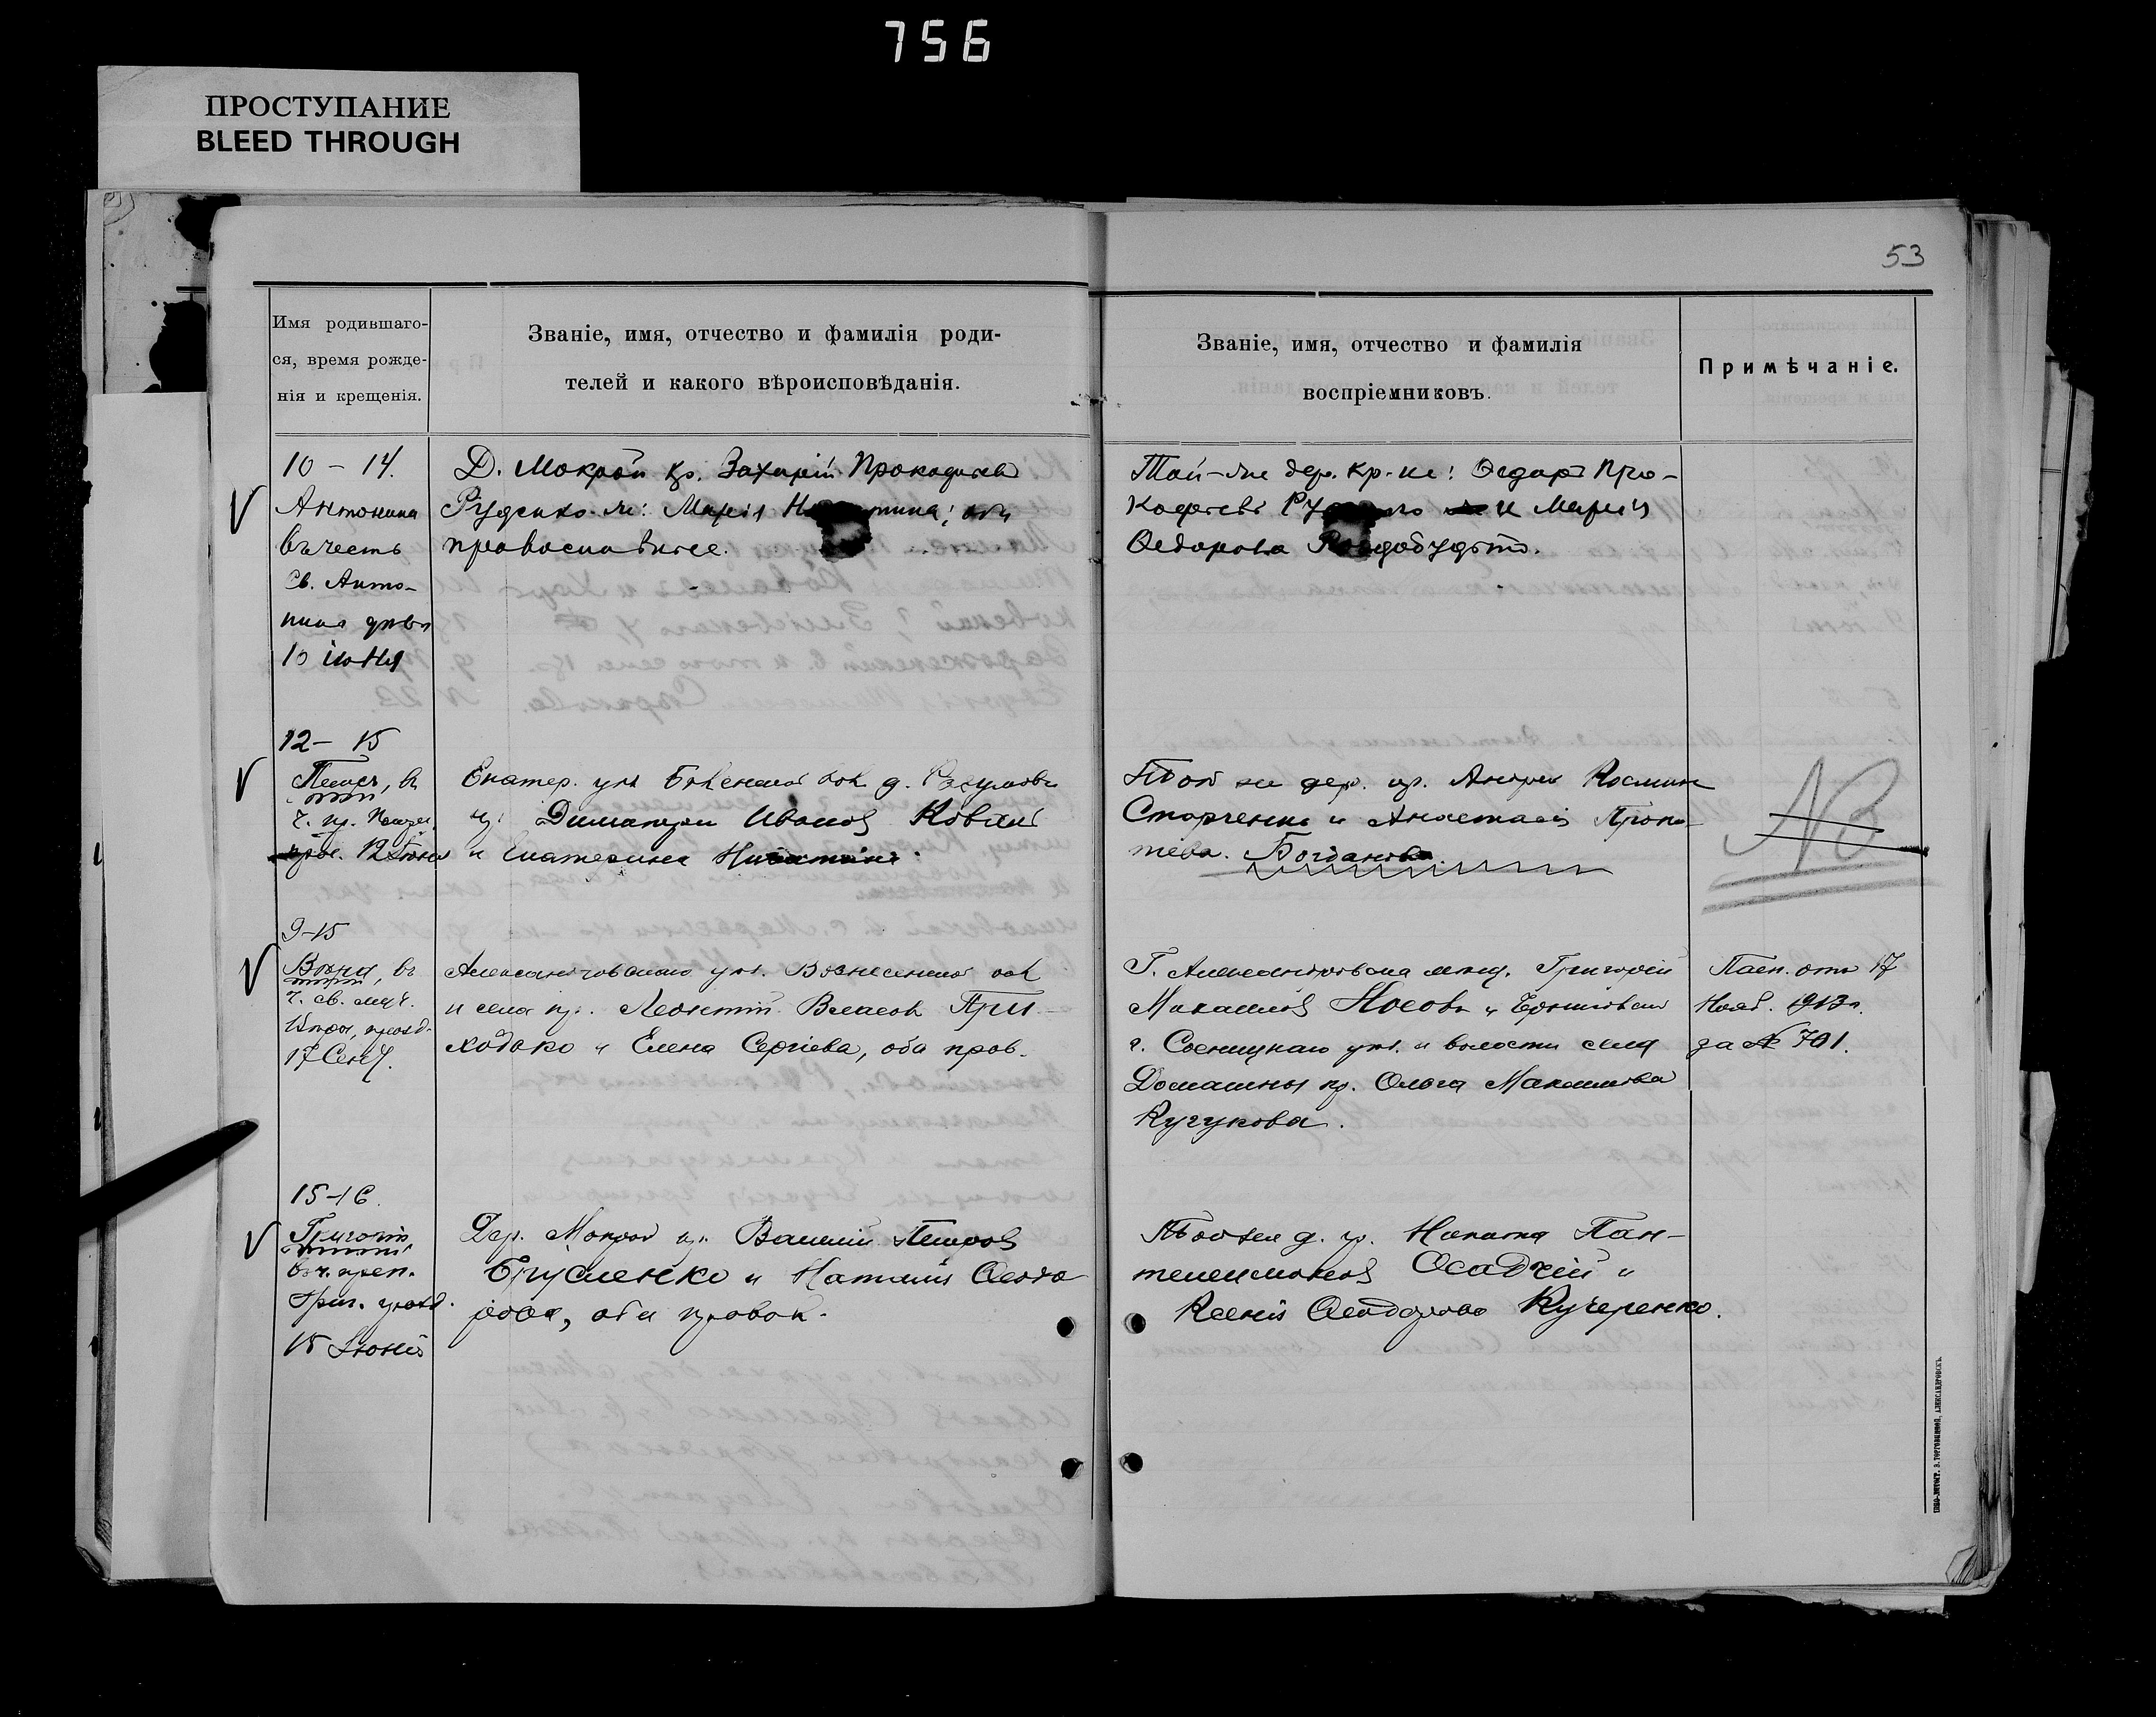 756
ПРОСТУПАНИЕ
BLEED THROUGH
53
Имя родившаго-
ся, время рожде-
нія и крещенія.
Званіе, имя, отчество и фамилія роди-
телей и какого вѣроисповѣданія.
Званіе, имя, отчество и фамилія
воспріемниковъ.
Примѣчаніе.
10 – 14.
Антонина
въ честь
Св. Анто-
нина
10 іюня
Д. Мокрой кр. Захарій Прокофьев
Руденко Марія оба
православные.
Той-же дер. кр-не: Ѳедоръ Про-
кофьевъ и Марія
Ѳедорова
12 – 15
12 Іюня
Екатер. уѣз. д.
Димитрій Иванов Коваль
и Екатерина
Той же дер. кр. Андрей Космин
Сторченко и Анастасія Проко-
Богданова
NB
9–15
въ
ч. св. муч.
17 Сент.
Александровскаго уѣз. Вознесенской вол
и села кр. Леонтій Власов При-
ходько и Елена Сергіева, оба прав.
Г. Александровска мещ. Григорій
Носовъ и Чернигов.
г. Сосницкаго уѣз. и волости села
кр. Ольга Максимова
Кучукова.
Пасп. отъ 17
Нояб. 1913 г.
за № 701.
15–16.
Григорій
въ ч. преп.
Григ. празд.
15 Іюня
Дер. Мокрой кр. Василій Петров
Брусленко и Наталія Ѳеодо
рова, оба правосл.
Той же д. кр. Никита Пан-
телеимонов Осадчій и
Ксенія Ѳеодорова Кучеренко.